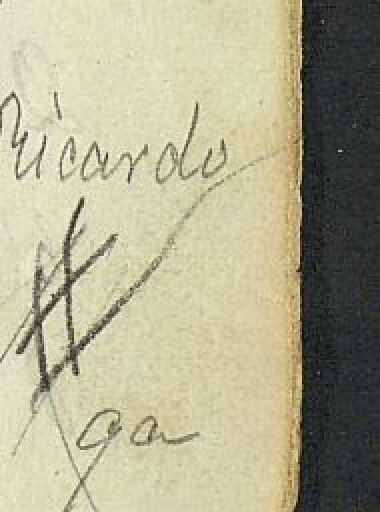 Ricardo
ga